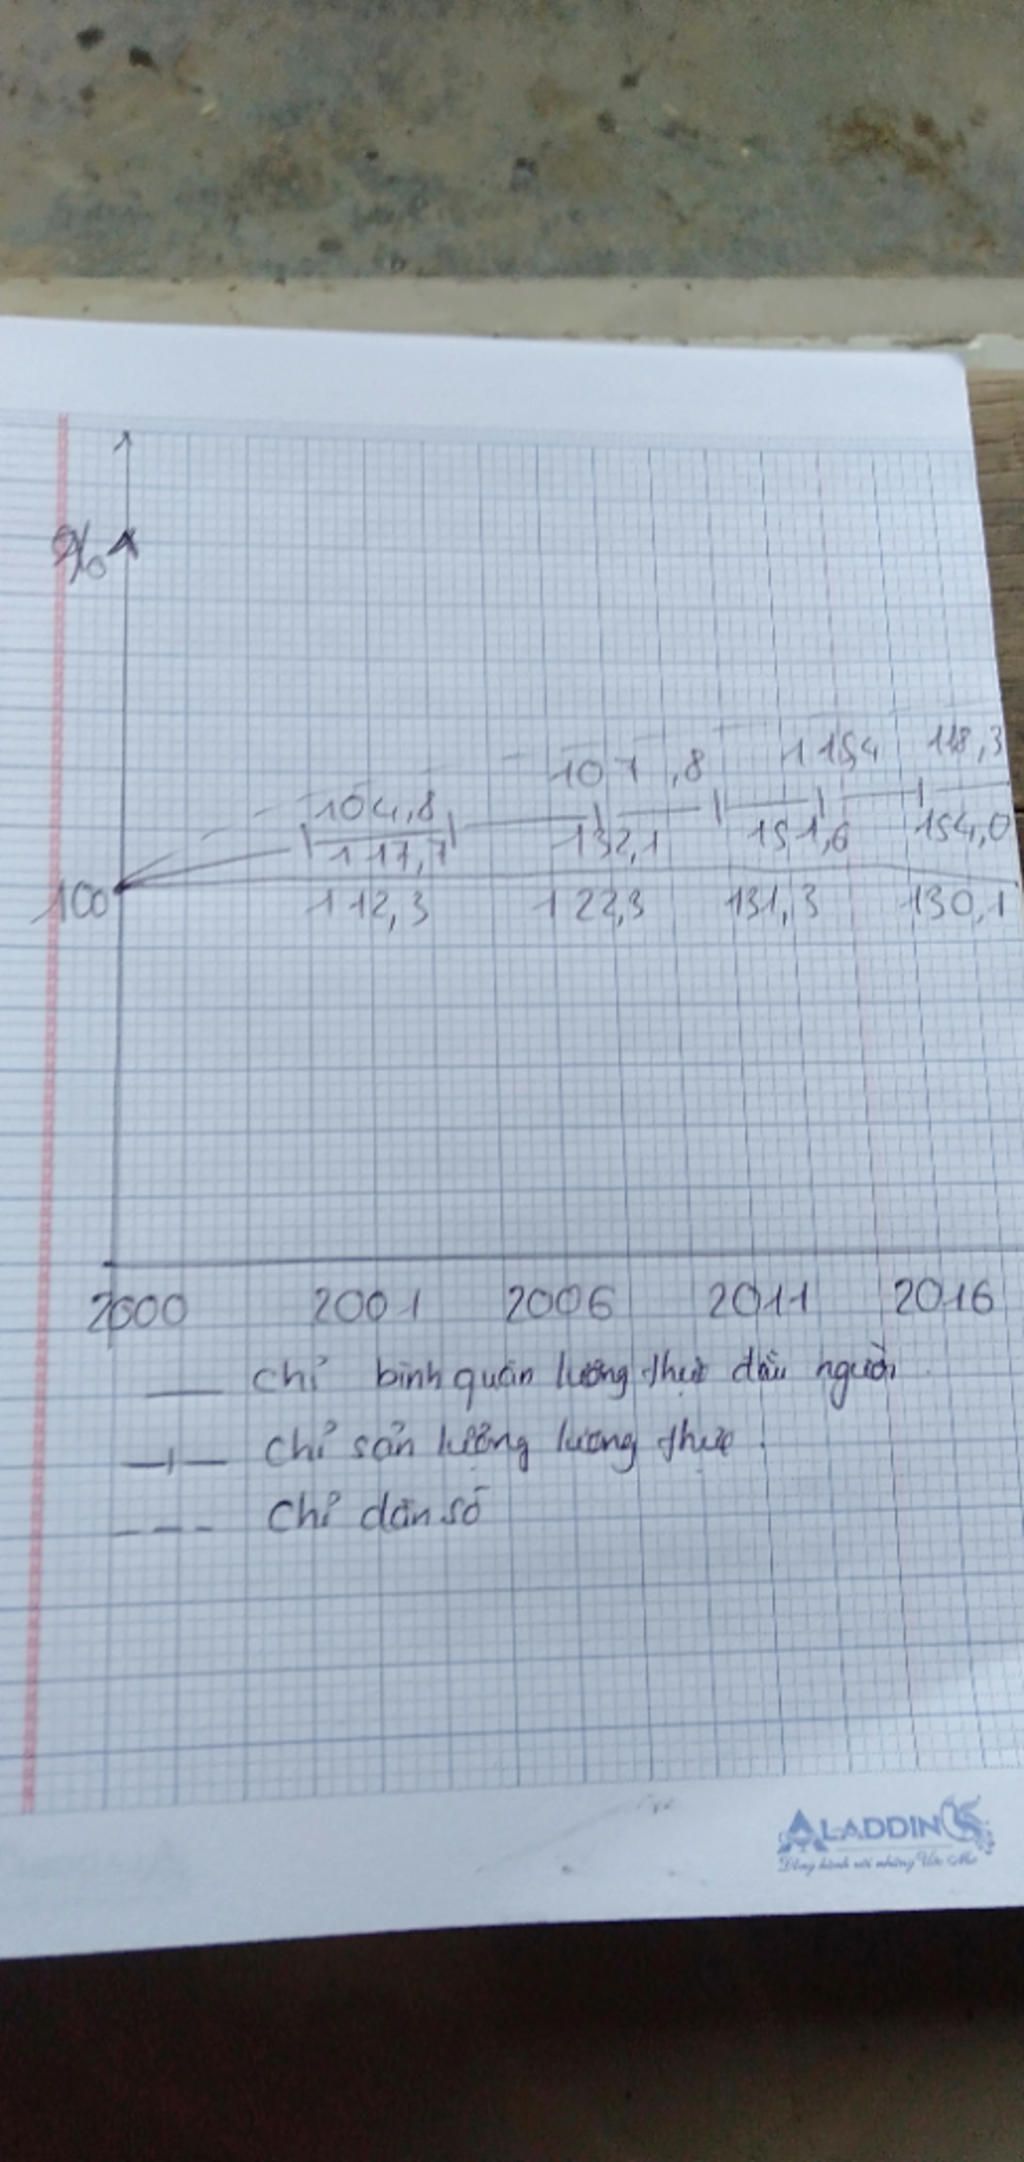 %
104,8 107,8 115,4 118,3
117,7 132,1 151,6 154,0
100 112,3 122,3 131,3 130,1
2000 2001 2006 2011 2016
chỉ bình quân lương thực đầu người
chỉ sản lượng lương thực
chỉ dân số
ALADDIN
Đồng hành với những Ước Mơ